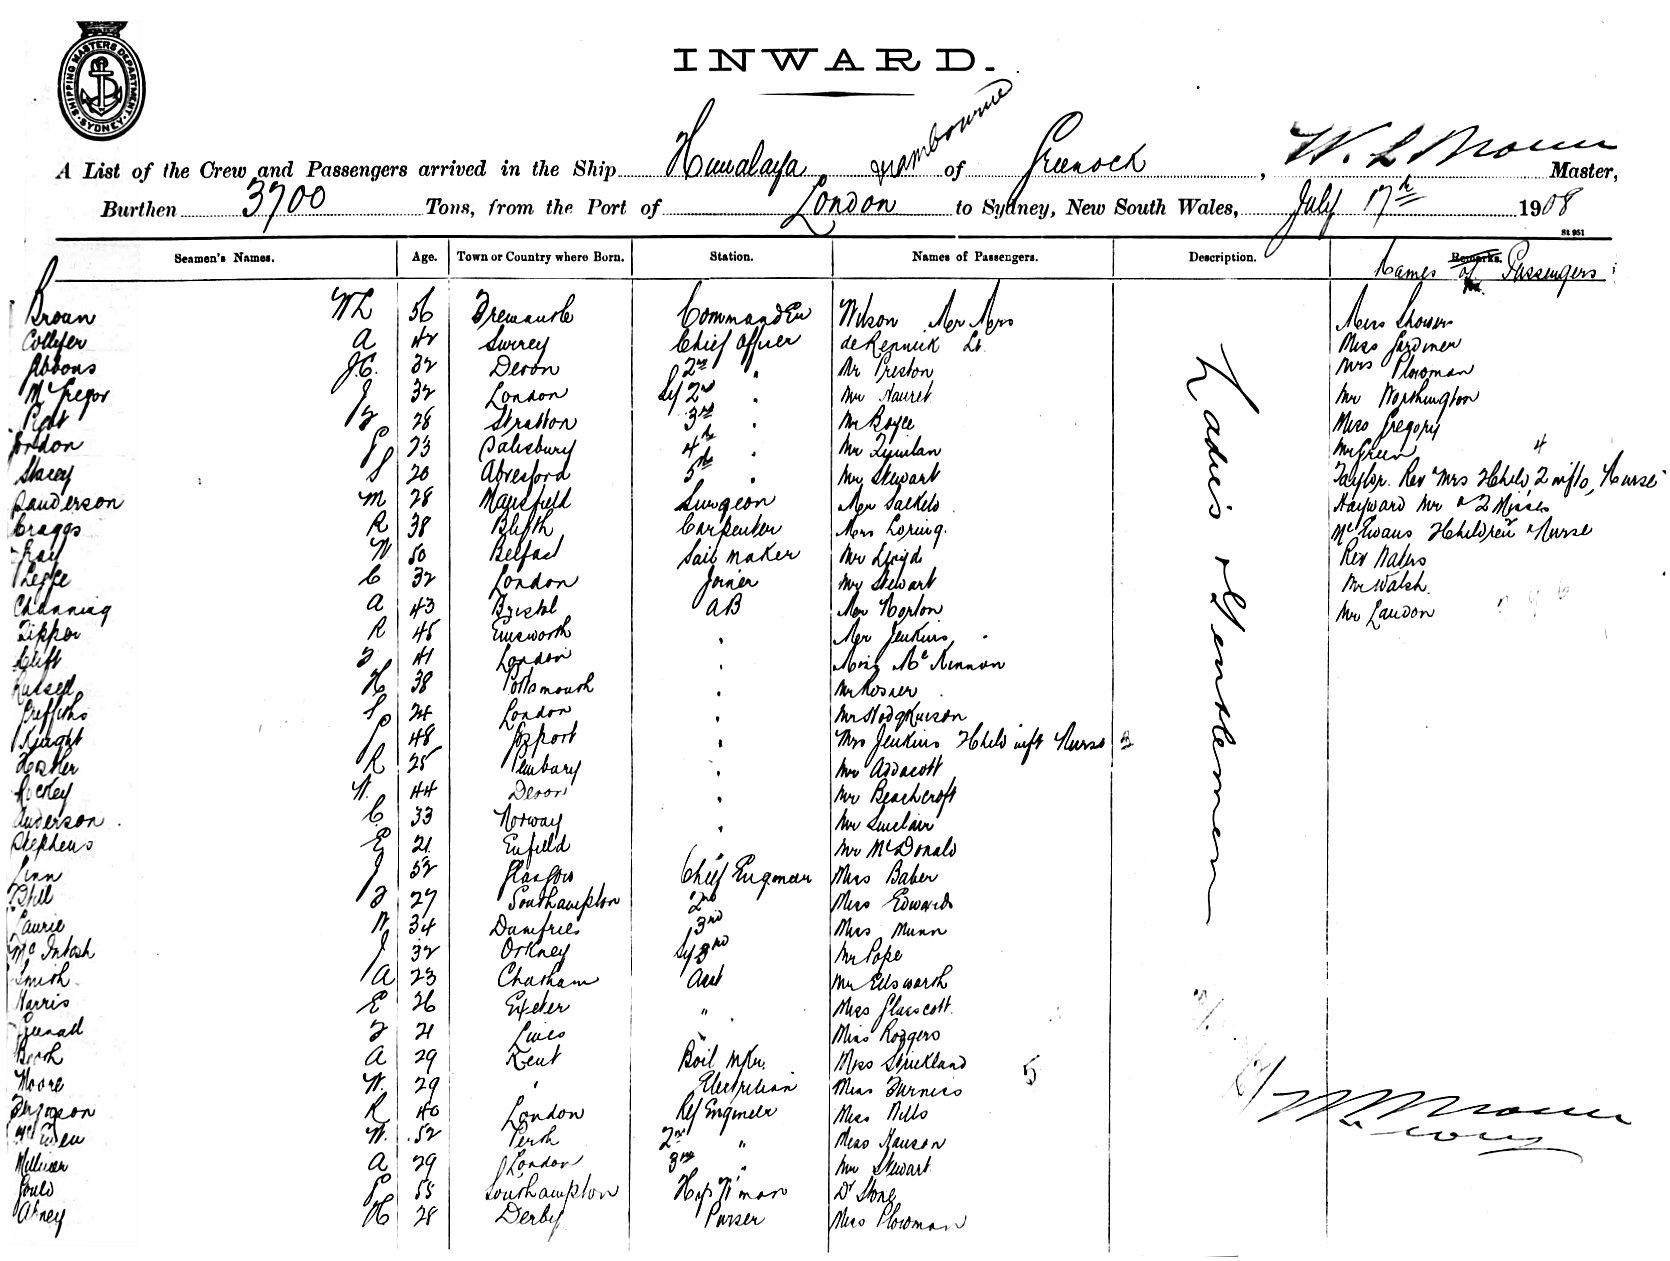 SHIPPING MASTERS DEPARTMENT
SYDNEY
INWARD.
A List of the Crew and Passengers arrived in the Ship Himalaya of Greenock, W. L Broun Master,
Burthen 3700 Tons, from the Port of London to Sydney, New South Wales, July 17th 1908
St 951
Seamen's Names. Age. Town or Country where Born. Station. Names of Passengers. Description. Remarks. Names of Passengers
Broun WL 56 Commander Wilson Mr Mrs Miss Shower
Collyer A 42 Surrey Chief Officer Lt. Miss Gardiner
Gibbons J.C. 32 Devon 2nd " Mr Preston Mrs Plowman
McGregor J 32 London 2nd " Mr Mr Worthington
28 Stratton 3rd " Mr Boyce Miss Gregory
Gordon P 23 Salisbury 4th Mr Quinlan Mr Green 4
Stacey S 20 Alresford 5th " Mr Stewart Taylor. Rev Mrs Nurse
Sanderson M 28 Mansfield Surgeon Hayward Mr & 2 Misses
Craggs R 38 Blyth Carpenter Mrs Loring. Children Nurse
Gray W 50 Belfast Sail Maker Mr Lloyd Rev Waters
Legge C 32 London Joiner Mr Stewart Mr Walsh.
Channing A 43 Bristol AB Mr Norton Mr Landon
Tipper R 45 Emsworth " Mr Jenkins
Clift 41 London Miss McKinnon
Russell H 38 Portsmouth " Mr Rosner
Griffiths 24 London " Mr Hodgkinson
Knight P 48 Gosport " Mrs Jenkins Nurse 3
R 25 Pembury " Mr Addacott
W. 44 Devon " Mr Beachcroft
Anderson C 33 Norway " Mr Sinclair
Stephens E 21 Enfield " Mr McDonald
Linn J 52 Glasgow Chief Engineer Miss Baber
27 Southampton 2nd Miss Edwards
Laurie W 34 Dumfries 3rd Miss Munn
McIntosh J 32 Orkney 3rd Mr Pope
Smith A 23 Chatham Asst Mr Ellsworth
Harris E 26 Exeter " Miss Glasscott.
21 " Miss Rodgers
Booth A 29 Kent Boil Mkr. Miss Strickland 5
Moore W. 29 " Electrician Miss Furness
Ferguson R 40 London Ref Engineer Miss Mills
W. 52 Perth 2nd " Miss Hanson
A 29 London 3rd " Mr Stewart
Gould P 55 Southampton Dr Stone
Abney H 28 Derby Purser Miss Plowman
Ladies & Gentlemen